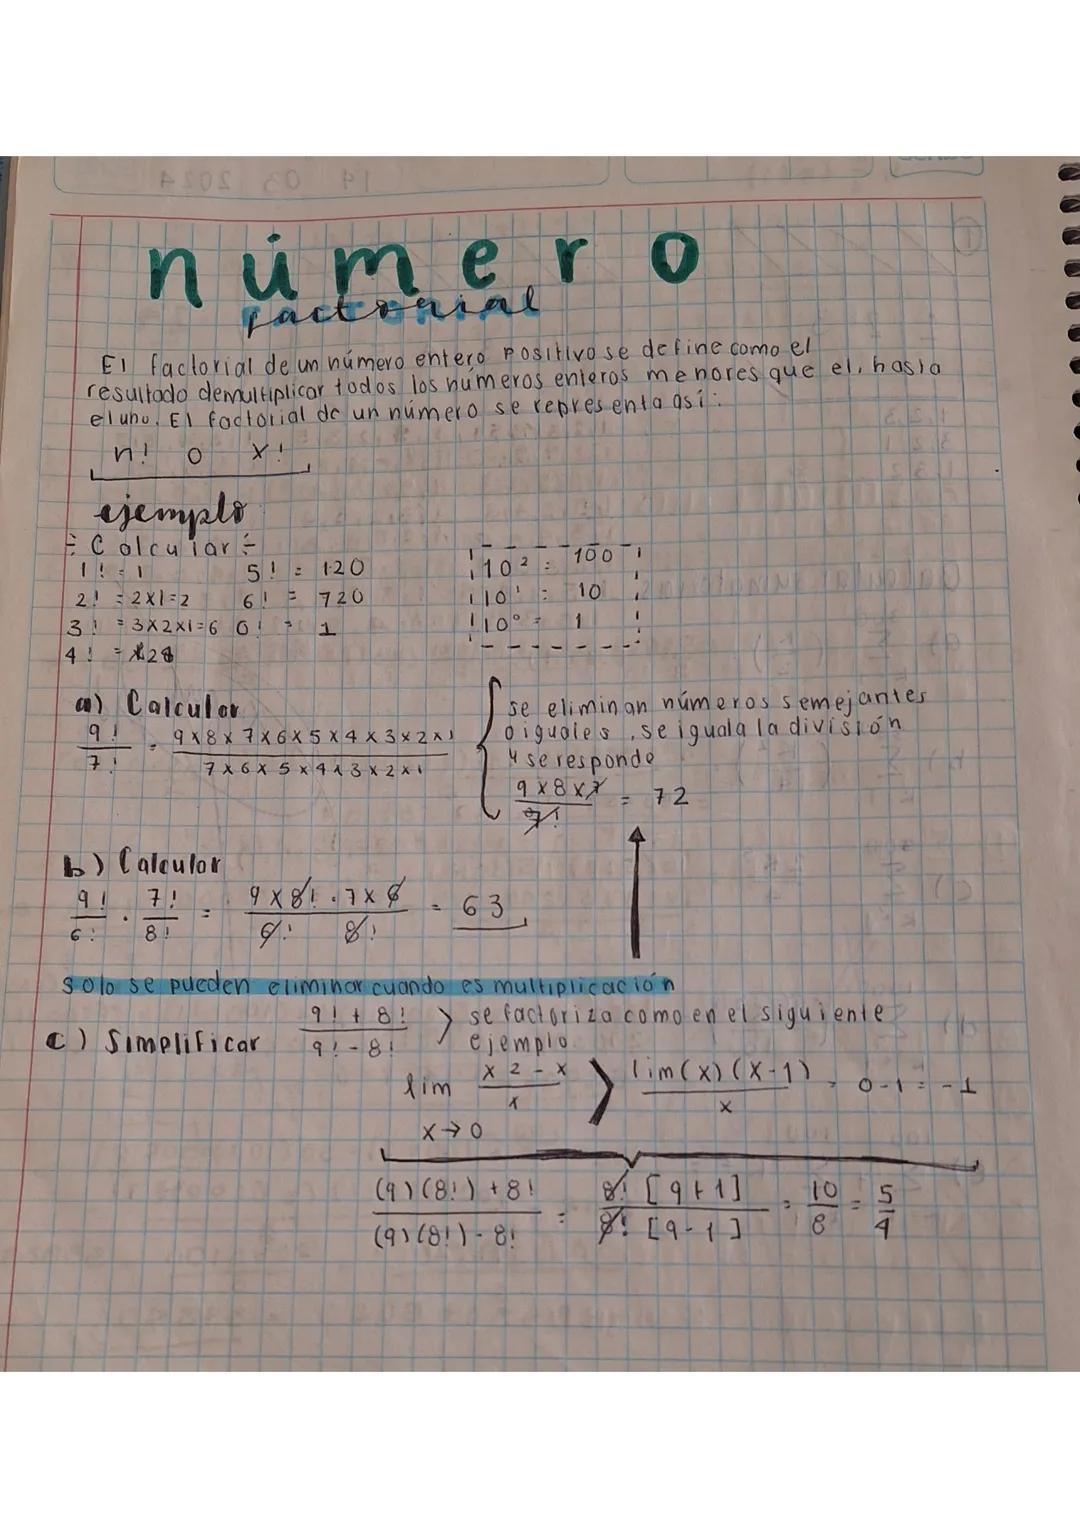 número
factorial
El factorial de un número entero positivo se define como el
resultado demultiplicar todos los números enteros menores que el, hasta
el uno. El factorial de un número se representa así:
n! o x!
ejemplo
÷ Calcular ÷
1! = 1 5! = 120
2! = 2x1=2 6! = 720
3! = 3x2x1=6 0! = 1
4! =
10² = 100
10¹ = 10
10⁰ = 1
a) Calcular
9! / 7! = 9x8x7x6x5x4x3x2x1 / 7x6x5x4x3x2x1
se eliminan números semejantes
o iguales, se iguala la división
y se responde
9x8x7 / 7! = 72
b) Calcular
9! / 6! · 7! / 8! = 9x8! · 7x6 / 6! 8! = 63
solo se pueden eliminar cuando es multiplicación
c) Simplificar 9! + 8! / 9! - 8! > se factoriza como en el siguiente
ejemplo
lim x→0 x2 - x / x > lim(x)(x-1) / x = 0-1 = -1
(9)(8!)+8! / (9)(8!)-8! = 8! [9+1] / 8! [9-1] = 10 / 8 = 5 / 4